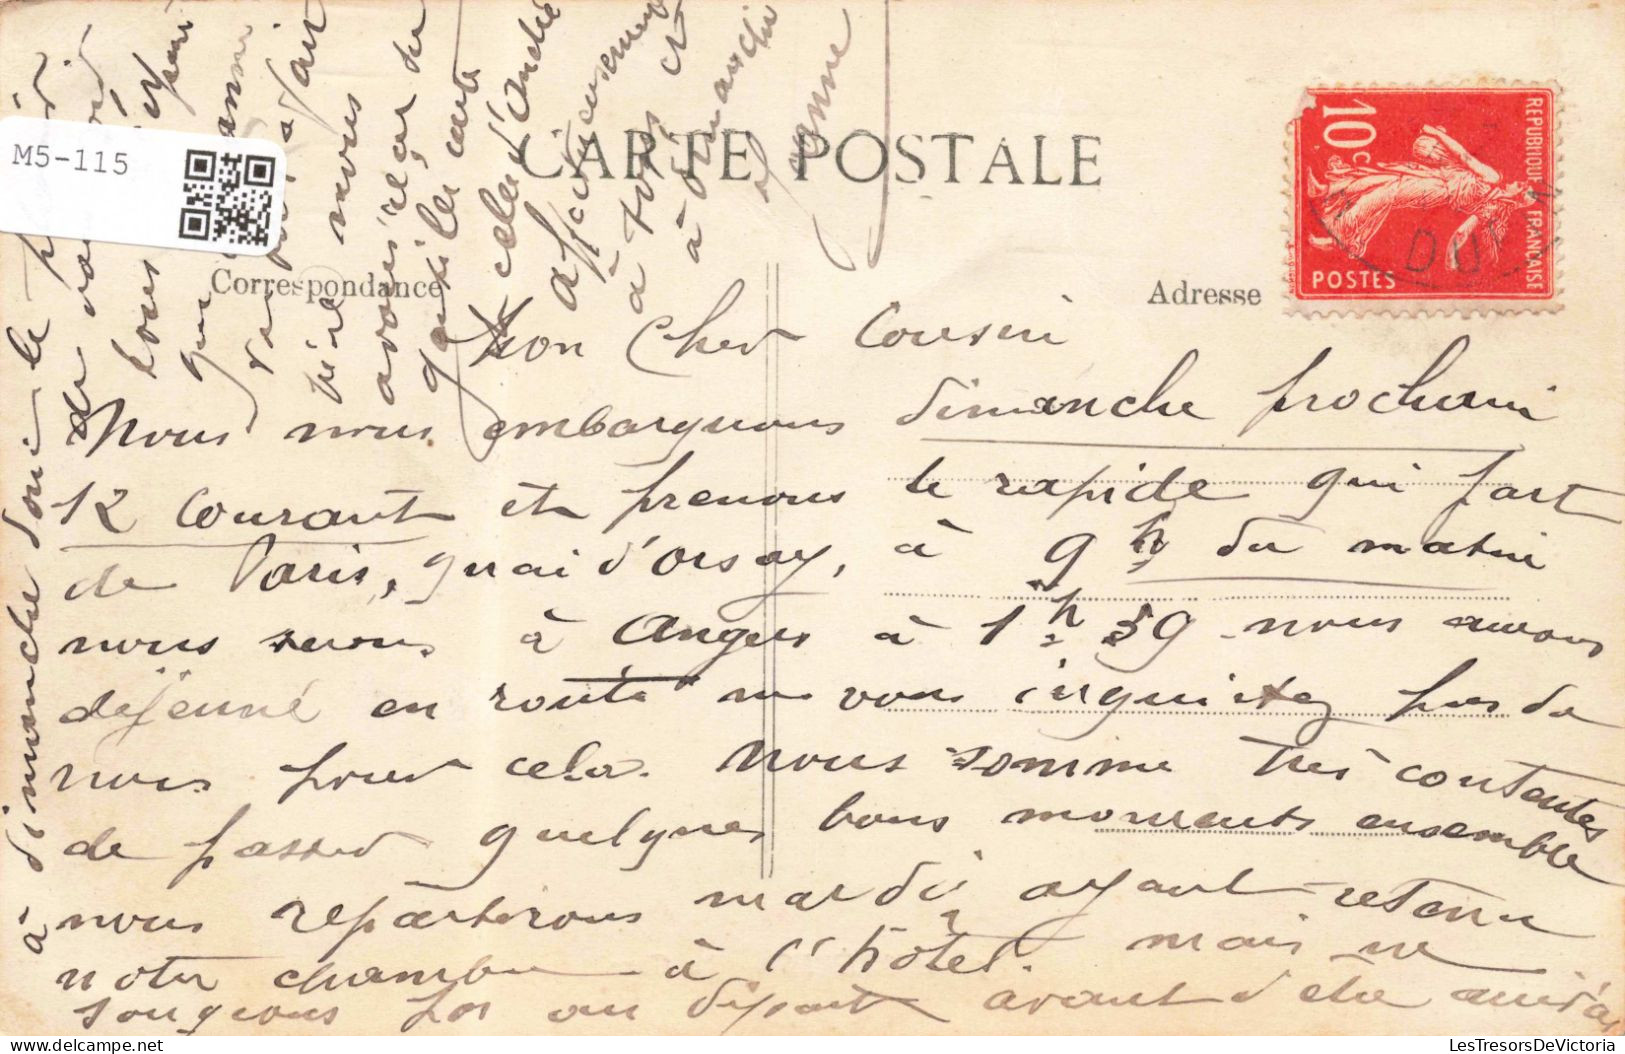 M5-115
CARTE POSTALE
REPUBLIQUE FRANCAISE
10c
POSTES
Correspondance
Adresse
Mon Cher Cousin
Nous nous embarquons dimanche prochain
12 Courant et prenons le rapide qui part
de Paris, quai d'orsay, à 9h du matin
nous serons à Angers à 1h 39 nous aurons
déjeuné en route ne vous inquietez pas de
nous pour cela. Nous somme très contentes
de passer quelques bons moments ensemble
nous repartirons mardi ayant retenu
notre chambre à l'hôtel. mais ne
songeons pas au départ avant d'être arrivés
à dimanche donc le
avoir
qu'il les
celles d'André
affectueusement
à tous et
à dimanche
Jeanne
LesTresorsDeVictoria